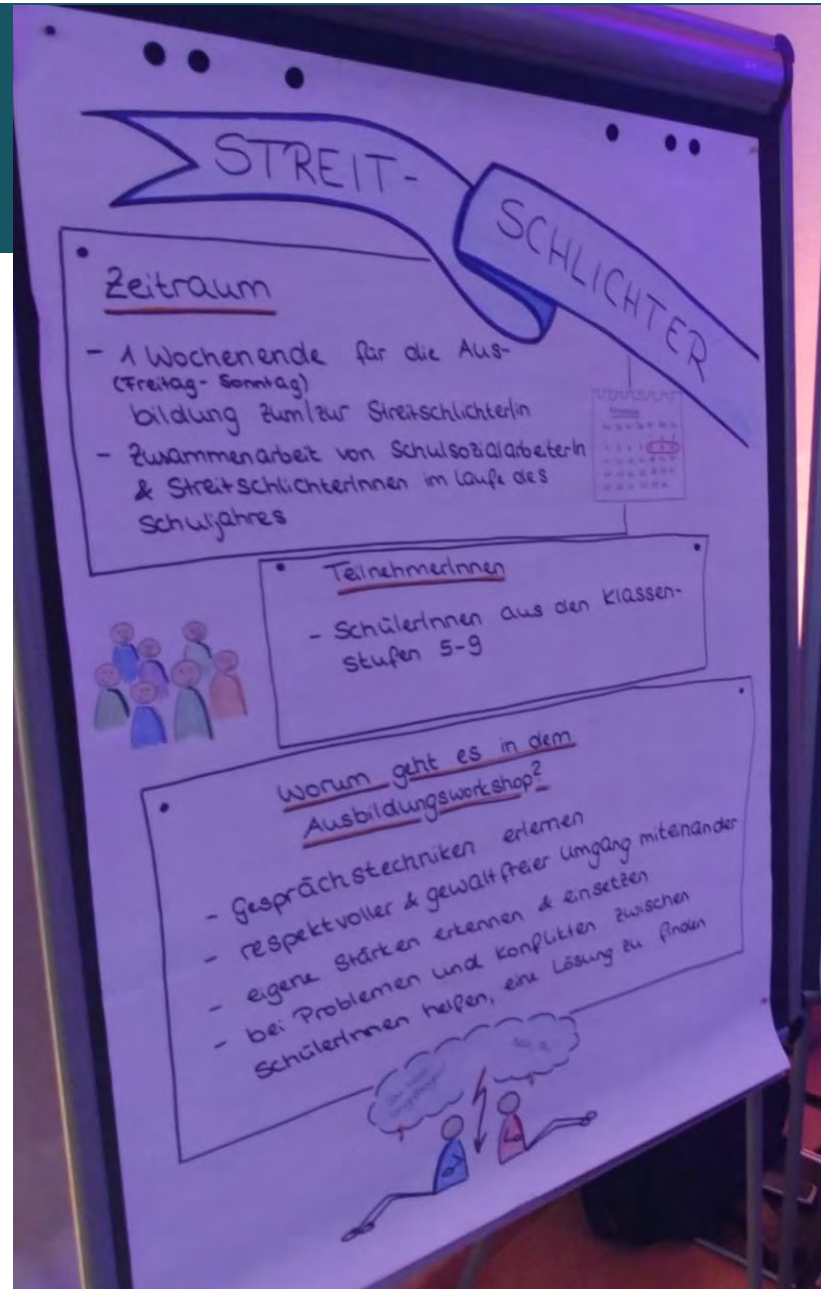 STREIT-
SCHLICHTER
Zeitraum
- 1 Wochenende für die Aus-
(Freitag - Sonntag)
bildung zum/zur StreitschlichterIn
- Zusammenarbeit von SchulsozialarbeiterIn
& StreitschlichterInnen im Laufe des
Schuljahres
TeilnehmerInnen
- SchülerInnen aus den Klassen-
stufen 5-9
Worum geht es in dem
Ausbildungsworkshop?
- Gesprächstechniken erlernen
- respektvoller & gewaltfreier Umgang miteinander
- eigene Stärken erkennen & einsetzen
- bei Problemen und Konflikten zwischen
SchülerInnen helfen, eine Lösung zu finden